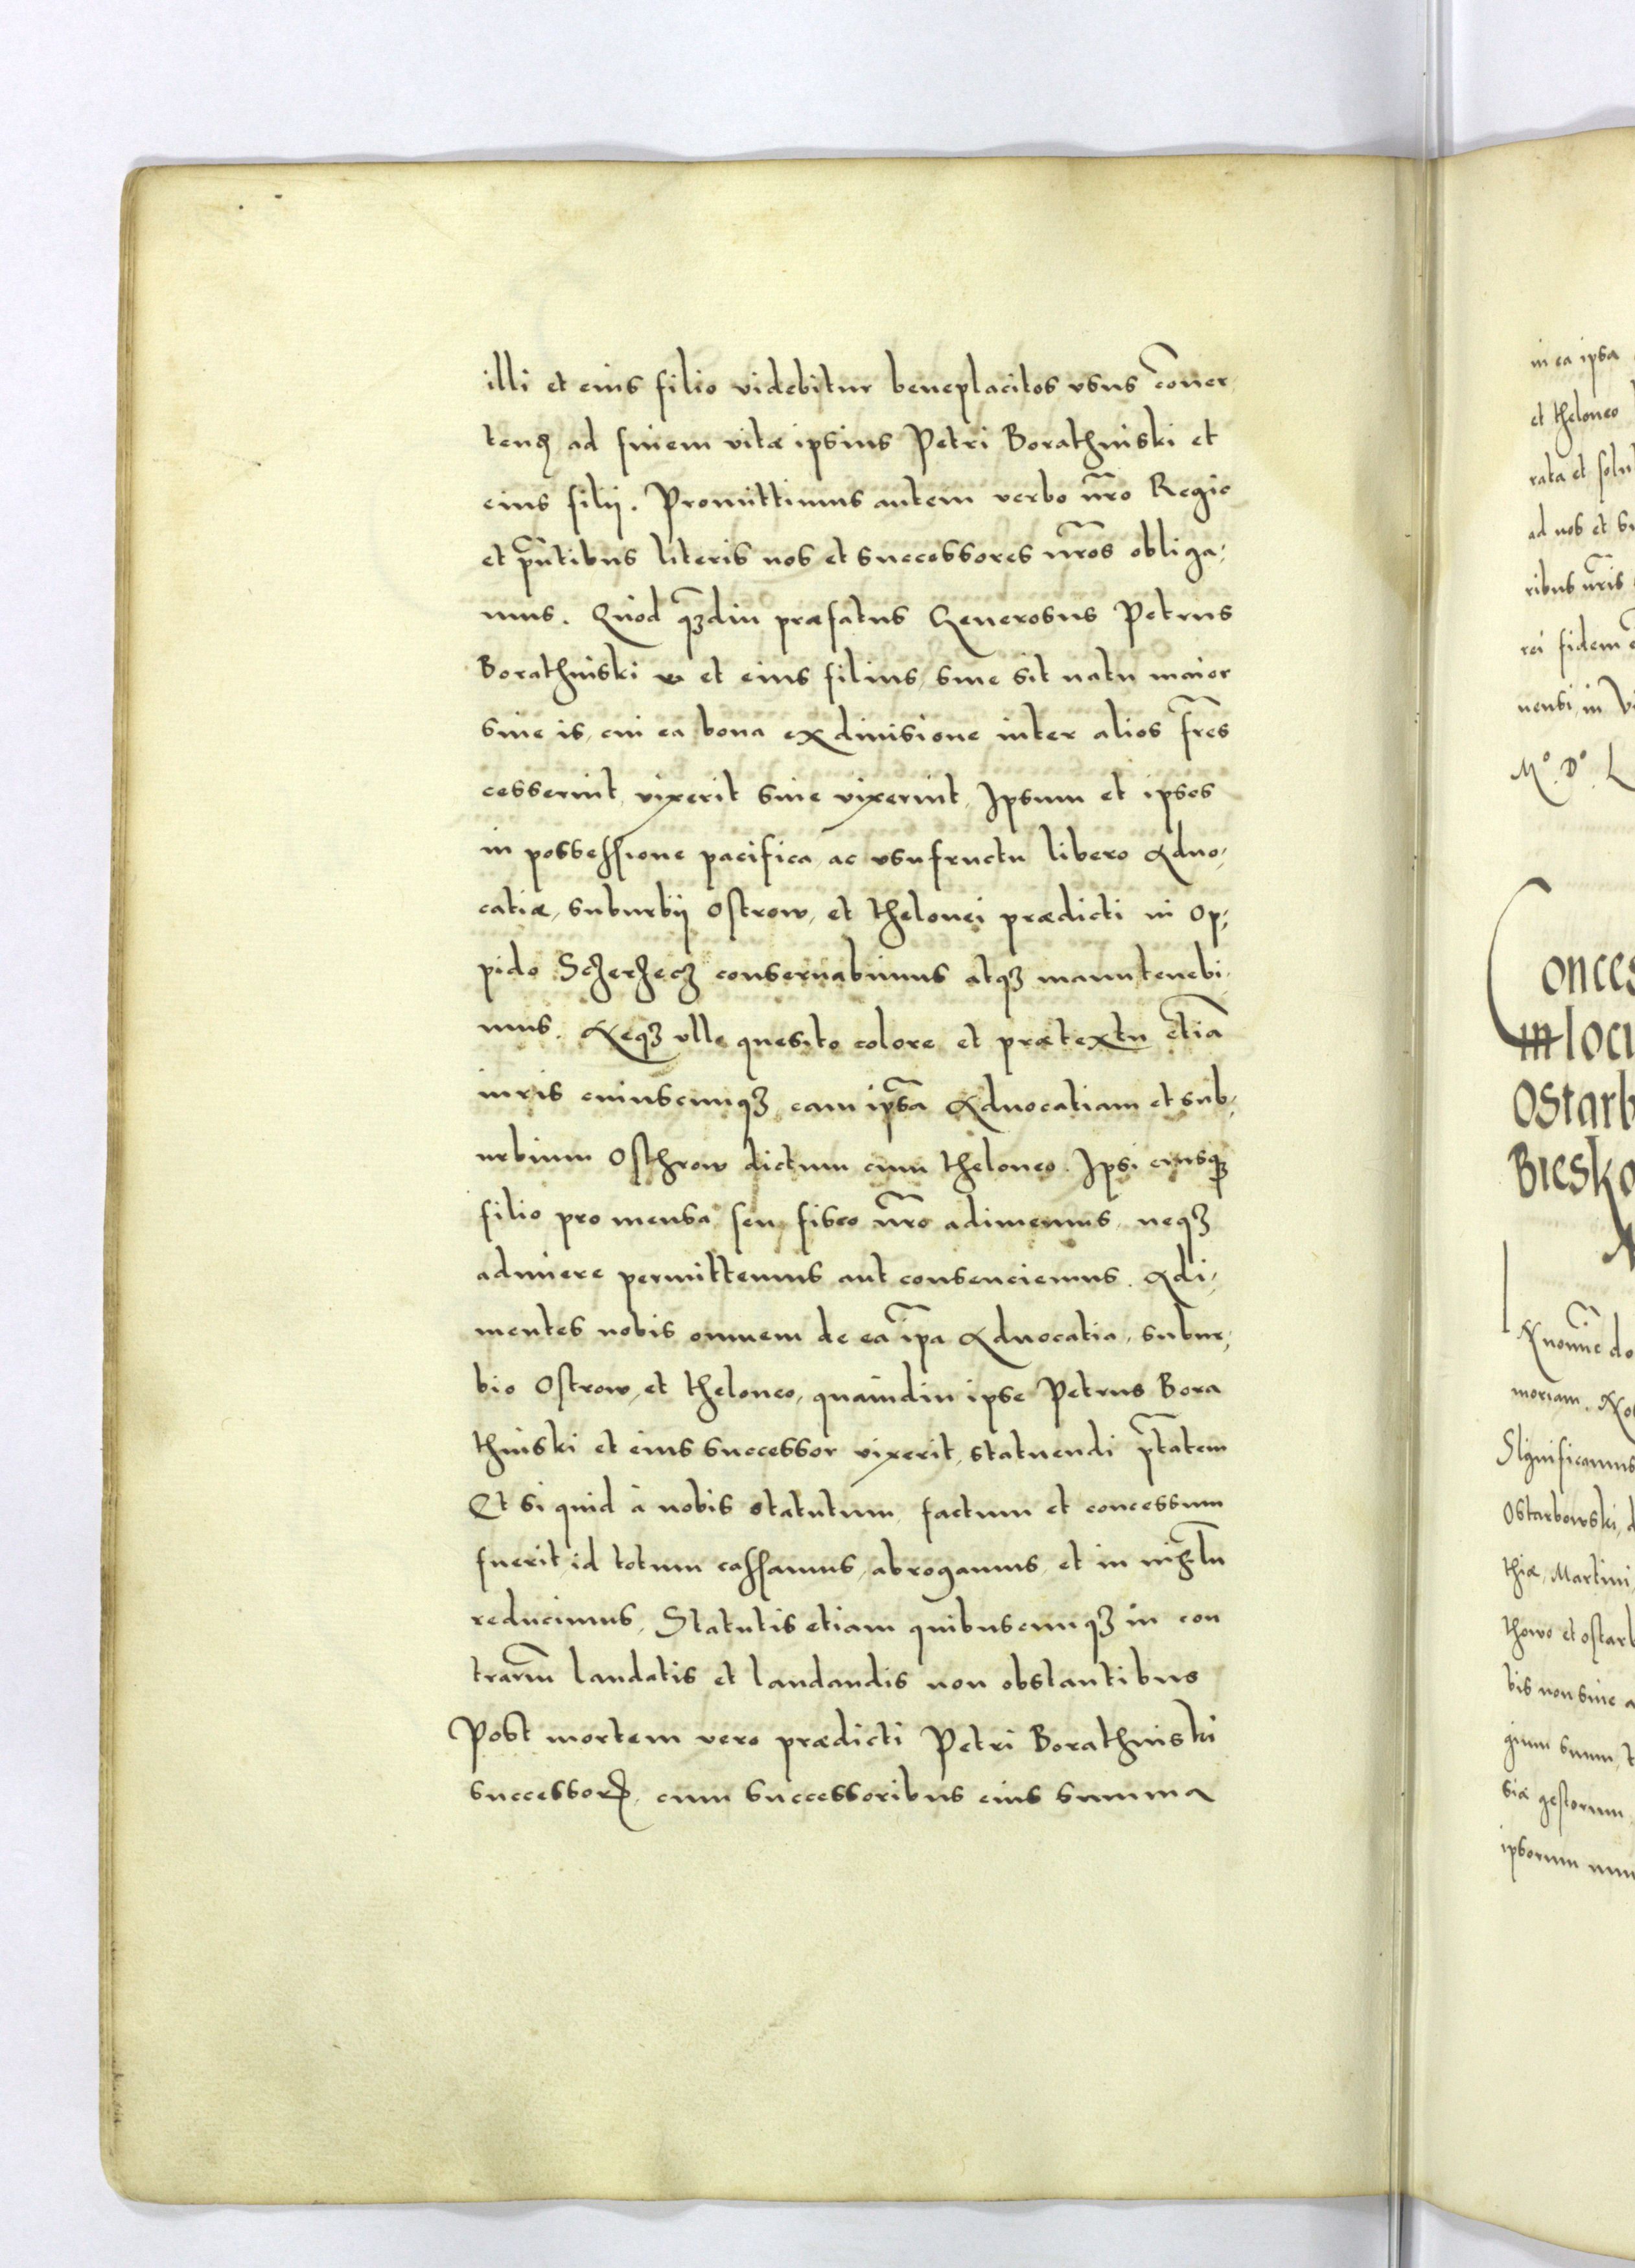 illi et eius filio videbitur beneplacitos vsus c̄onuer,
tenꝭ ad finem vitæ ipsius Petri Borathinski et
eius filij. Promittimus autem verbo nr̄o Regio
et pn̄tibus literis nos et successores nr̄os obliga,
mus. Quod qꝫ̄diu præfatus Generosus Petrus
Borathinski et eius filius, siue sit natu maior
siue is, cui ea bona ex diuisione inter alios fr̄es
cesserint, vixerit siue vixerint, Ipsum et ipsos
in possessione pacifica ac vsufructu libero Aduo,
catiæ, suburbij Ostrow, et thelonei prædicti in Op,
pido Sczerzecz conseruabimus atqꝫ manutenebi,
mus. Neqꝫ vllo quesito colore et prætextu etiā
iuris cuiuscunqꝫ eam ips̄a Aduocatiam et sub,
urbium Osthrow dictum cum theloneo. Ipsi eiusqꝫ
filio pro mensa seu fisco nr̄o adimemus, neqꝫ
adimere permittemus aut consenciemus. Adi,
mentes nobis omnem de ea ip̄a Aduocatia, subur,
bio Ostrow, et theloneo, quamdiu ipse Petrus Bora
thinski et eius successor vixerit, statuendi pt̄atem
Et si quid à nobis statutum, factum et concessum
fuerit, id totum cassamus, abrogamus, et in nihl̄u
reducimus, Statutis etiam quibuscunqꝫ in con
trariū laudatis et laudandis non obstantibus
Post mortem vero prædicti Petri Borathinski
successorꝭ, cum successoribus eius summa
in ea ipsa
et theloneo
rata et solu
ad nos et su
ribus nr̄is
rei fidem
nensi, in Vi
Mo. Do. L
onces
in locu
Ostarb
Biesko
N nomīe do
moriam. No
Significamus
Ostarbowski, d
thiæ, Martini,
thowo et ostarb
bis non sine a
gium suum, t
siæ gestorum
ipsorum mun